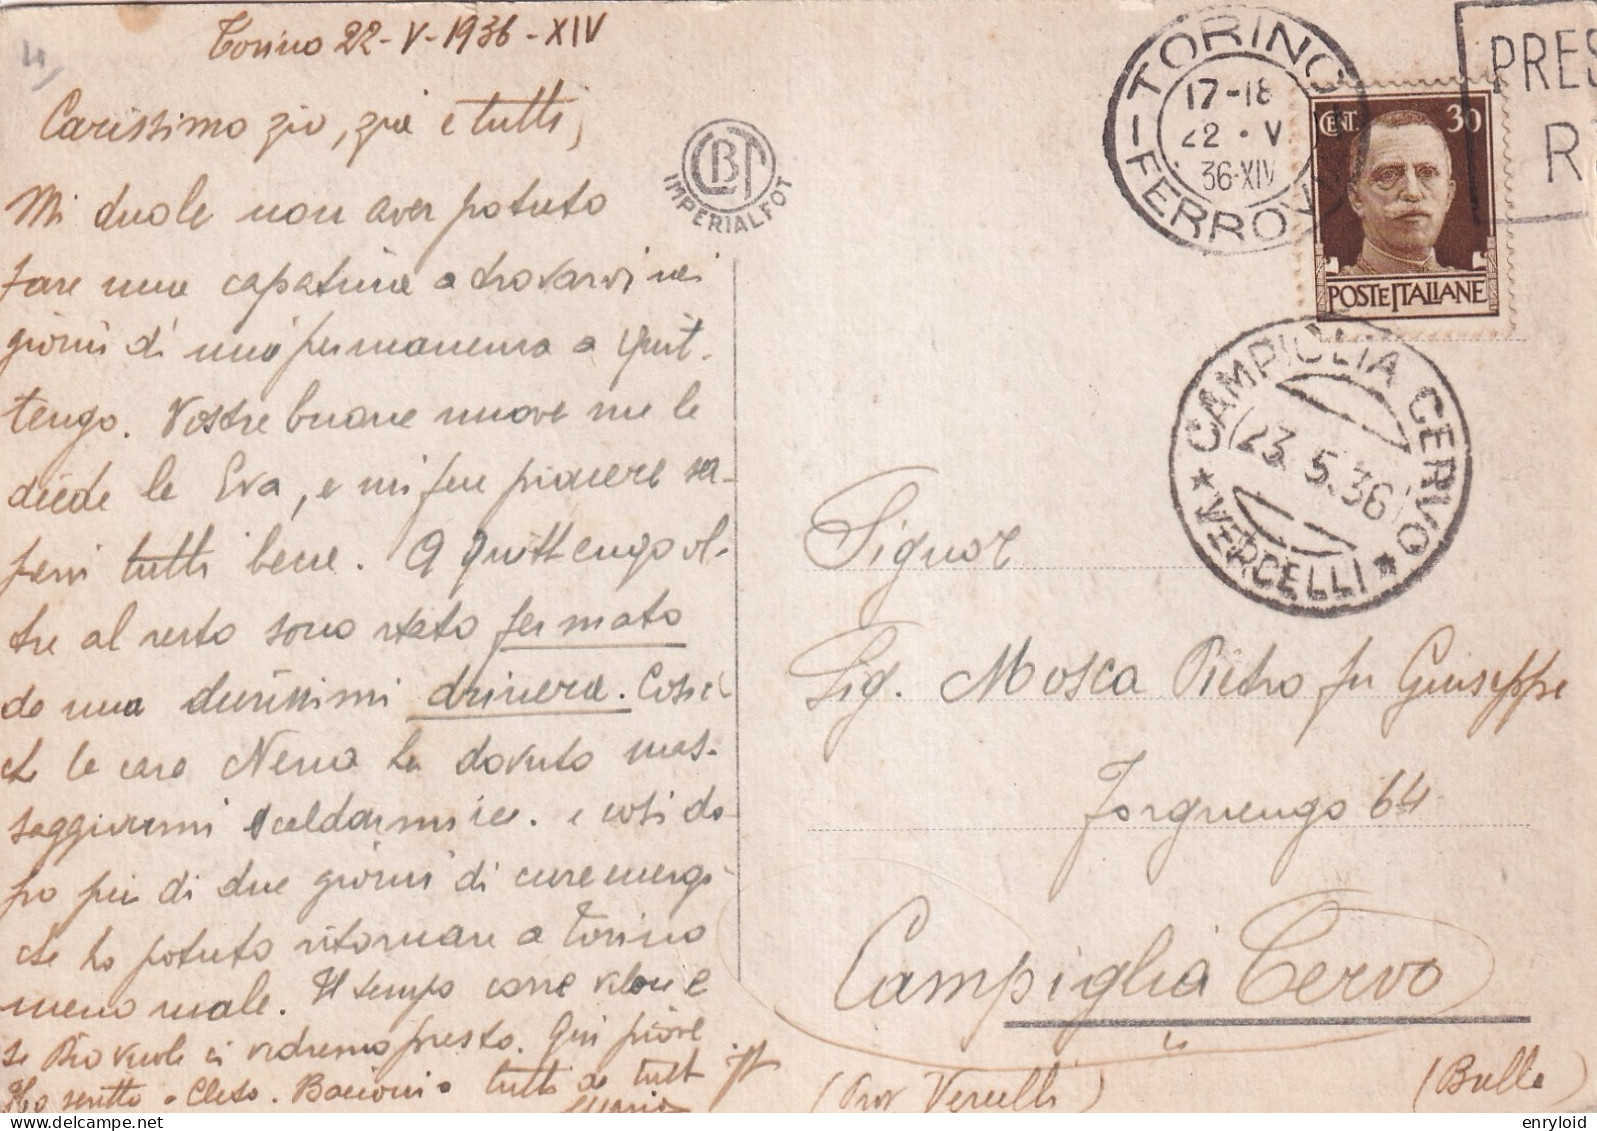 Torino 22-V-1936-XIV
Carissimo zio, zia e tutti,
Mi duole non aver potuto
fare una capatina a trovarvi nei
giorni di mia permanenza a Quit-
tengo. Vostre buone nuove me le
diede la Eva, e mi fece piacere sa-
pervi tutti bene. A Quittengo ol-
tre al resto sono stato fermato
da una durissimi drivera. Cosic
chè la cara Nena ha dovuto mas-
saggiarmi scaldarmi ecc. e così do-
po più di due giorni di cure energi-
che ho potuto ritornare a Torino
meno male. Il tempo corre veloce e
se Dio vuole ci vedremo presto. Qui piove
Ho scritto a Cleto. Bacioni a tutti da tutti
Mario
CBT
IMPERIALFOT
TORINO
FERROVIA
17-18
22 • V
36-XIV
PRES
R
CENT. 30
POSTE ITALIANE
CAMPIGLIA CERVO
23.5.36
VERCELLI
Signor
Sig. Mosca Pietro fu Giuseppe
Forgnengo 64
Campiglia Cervo
(Prov Vercelli)
(Balla)
enryloid